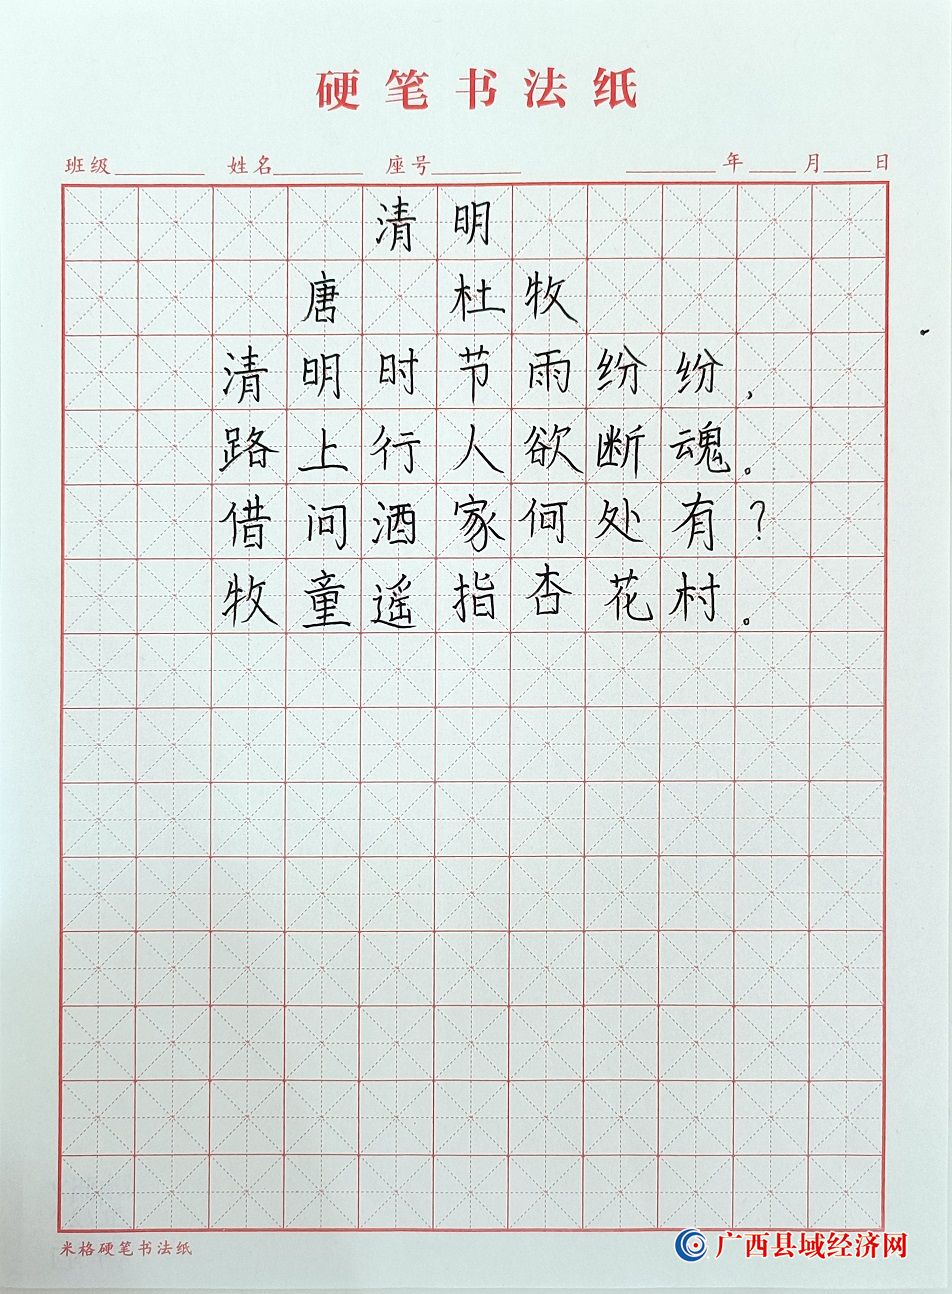 硬笔书法纸
班级 姓名 座号 年 月 日
清明
唐 杜牧
清明时节雨纷纷，
路上行人欲断魂。
借问酒家何处有？
牧童遥指杏花村。
米格硬笔书法纸
广西县域经济网